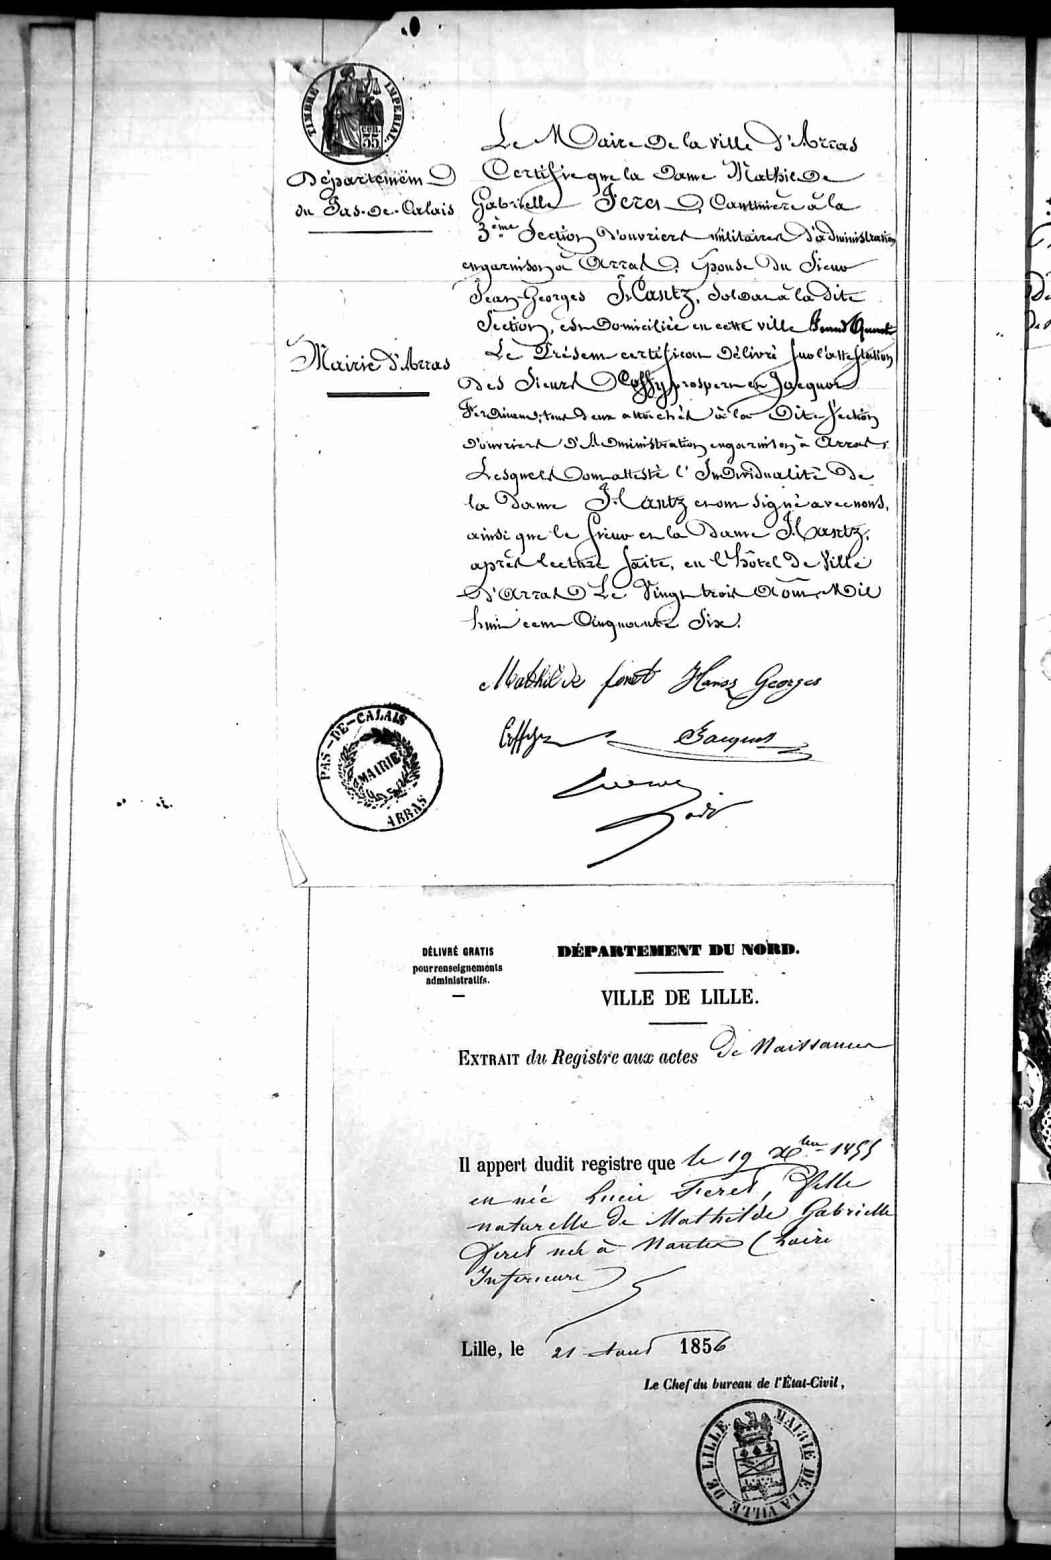 TIMBRE IMPERIAL
35
Département
du Pas-de-Calais
Mairie d'Arras
Le Maire de la ville d'Arras
Certifie que la Dame Mathilde
Gabrielle Feret, Cantinière à la
3ème Section d'ouvriers militaires d'administration
en garnison à Arras, épouse du Sieur
Jean Georges Hantz, soldat à la dite
Section, est domiciliée en cette ville
Le Présent certificat délivré sur l'attestation
des Sieurs prosper et Jacquot
Ferdinand, tous deux attachés à la dite Section
d'ouvriers d'Administration en garnison à Arras,
Lesquels ont attesté l'Individualité de
la Dame Hantz et ont signé avec nous,
ainsi que le Sieur et la Dame Hantz,
après lecture faite, en l'hôtel de Ville
d'Arras Le Vingt trois Août Mil
huit cent Cinquante Six.
Mathilde feret Hanz Georges
Jacquot
PAS-DE-CALAIS
MAIRIE
ARRAS
DÉLIVRÉ GRATIS
pour renseignements
administratifs.
DÉPARTEMENT DU NORD.
VILLE DE LILLE.
EXTRAIT du Registre aux actes de Naissance
Il appert dudit registre que le 19 Xbre 1855
est née Lucie Feret, fille
naturelle de Mathilde Gabrielle
Feret née à Nantes (Loire
Inférieure)
Lille, le 21 Aout 1856
Le Chef du bureau de l'État-Civil,
MAIRIE DE LA VILLE DE LILLE